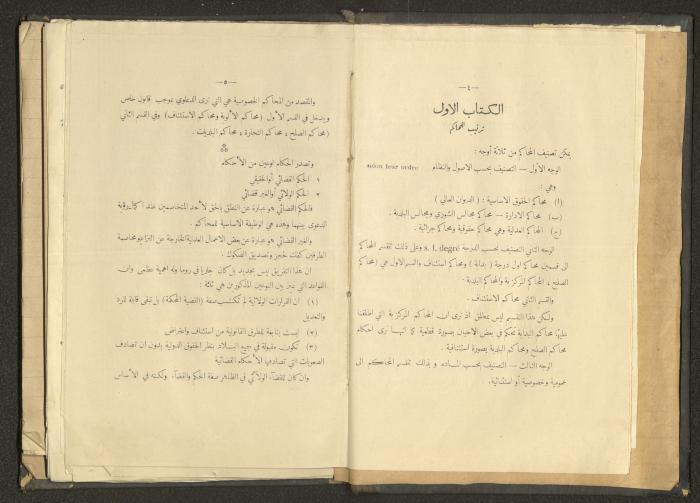 — ٤ —
الكتاب الاول
ترتيب المحاكم
يمكن تصنيف المحاكم من ثلاثة أوجه :
الوجه الأول — التصنيف بحسب الاصول والنظام selon leur ordre
وهي :
(ا) محاكم الحقوق الاساسية : ( الديوان العالي )
(ب) محاكم الادارة — محاكم مجالس الشورى ومجالس البلدية .
(ج) المحاكم العدلية وهي محاكم حقوقية ومحاكم جزائية .
الوجه الثاني التصنيف بحسب الدرجة s. l. degré وعلى ذلك تقسم المحاكم
الى قسمين محاكم اول درجة ( بداية ) ومحاكم استئناف والقسم الاول هي (محاكم
الصلح ، المحاكم المركزية والمحاكم البلدية .
والقسم الثاني محاكم الاستئناف .
ولكن هذا التقسيم ليس بمطلق اذ نرى ان المحاكم المركزية التي اطلقنا
عليها محاكم البداية تحكم في بعض الاحيان بصورة قطعية كما انها ترى احكام
محاكم الصلح ومحاكم البلدية بصورة استئنافية .
الوجه الثالث — التصنيف بحسب المادة وبذلك تقسم المحاكم الى
عمومية وخصوصية أو استثنائية .
— ٥ —
والمقصد من المحاكم الخصوصية هي التي ترى الدعاوي بموجب قانون خاص
ويدخل في القسم الأول (محاكم الألوية ومحاكم الاستئناف) وفي القسم الثاني
(محاكم الصلح ، محاكم التجارة ، محاكم البلديات .
وتصدر الحكام نوعين من الأحكام
١ الحكم القضائي أو الحقيقي
٢ الحكم الولائي أو الغير قضائي
فالحكم القضائي هو عبارة عن النطق بالحق لأحد المتخاصمين عند اكمال رؤية
الدعوى بينهما وهذه هي الوظيفة الاساسية للمحاكم .
والغير القضائي هو عبارة عن بعض الاعمال العدلية الخارجة عن النزاع ومخاصمة
الطرفين كفك الحجر وتصديق الصكوك .
ان هذا التفريق ليس بجديد بل كان جاريا في روما وله اهمية عظمى وان
القواعد التي تميز بين النوعين المذكورين هي ثلاثة :
(١) ان القرارات الولائية لم تكتسب صفة (القضية المحكمة) بل تبقى قابلة للرد
والتعديل
(٢) ليست بتابعة للطرق القانونية من استئناف واعتراض
(٣) تكون مقبولة في جميع البلاد بنظر الحقوق الدولية بدون ان تصادف
الصعوبات التي تصادفها الأحكام القضائية
وان كان للقضاء الولائي في الظاهر صفة الحكم والقضاء ولكنه في الأساس